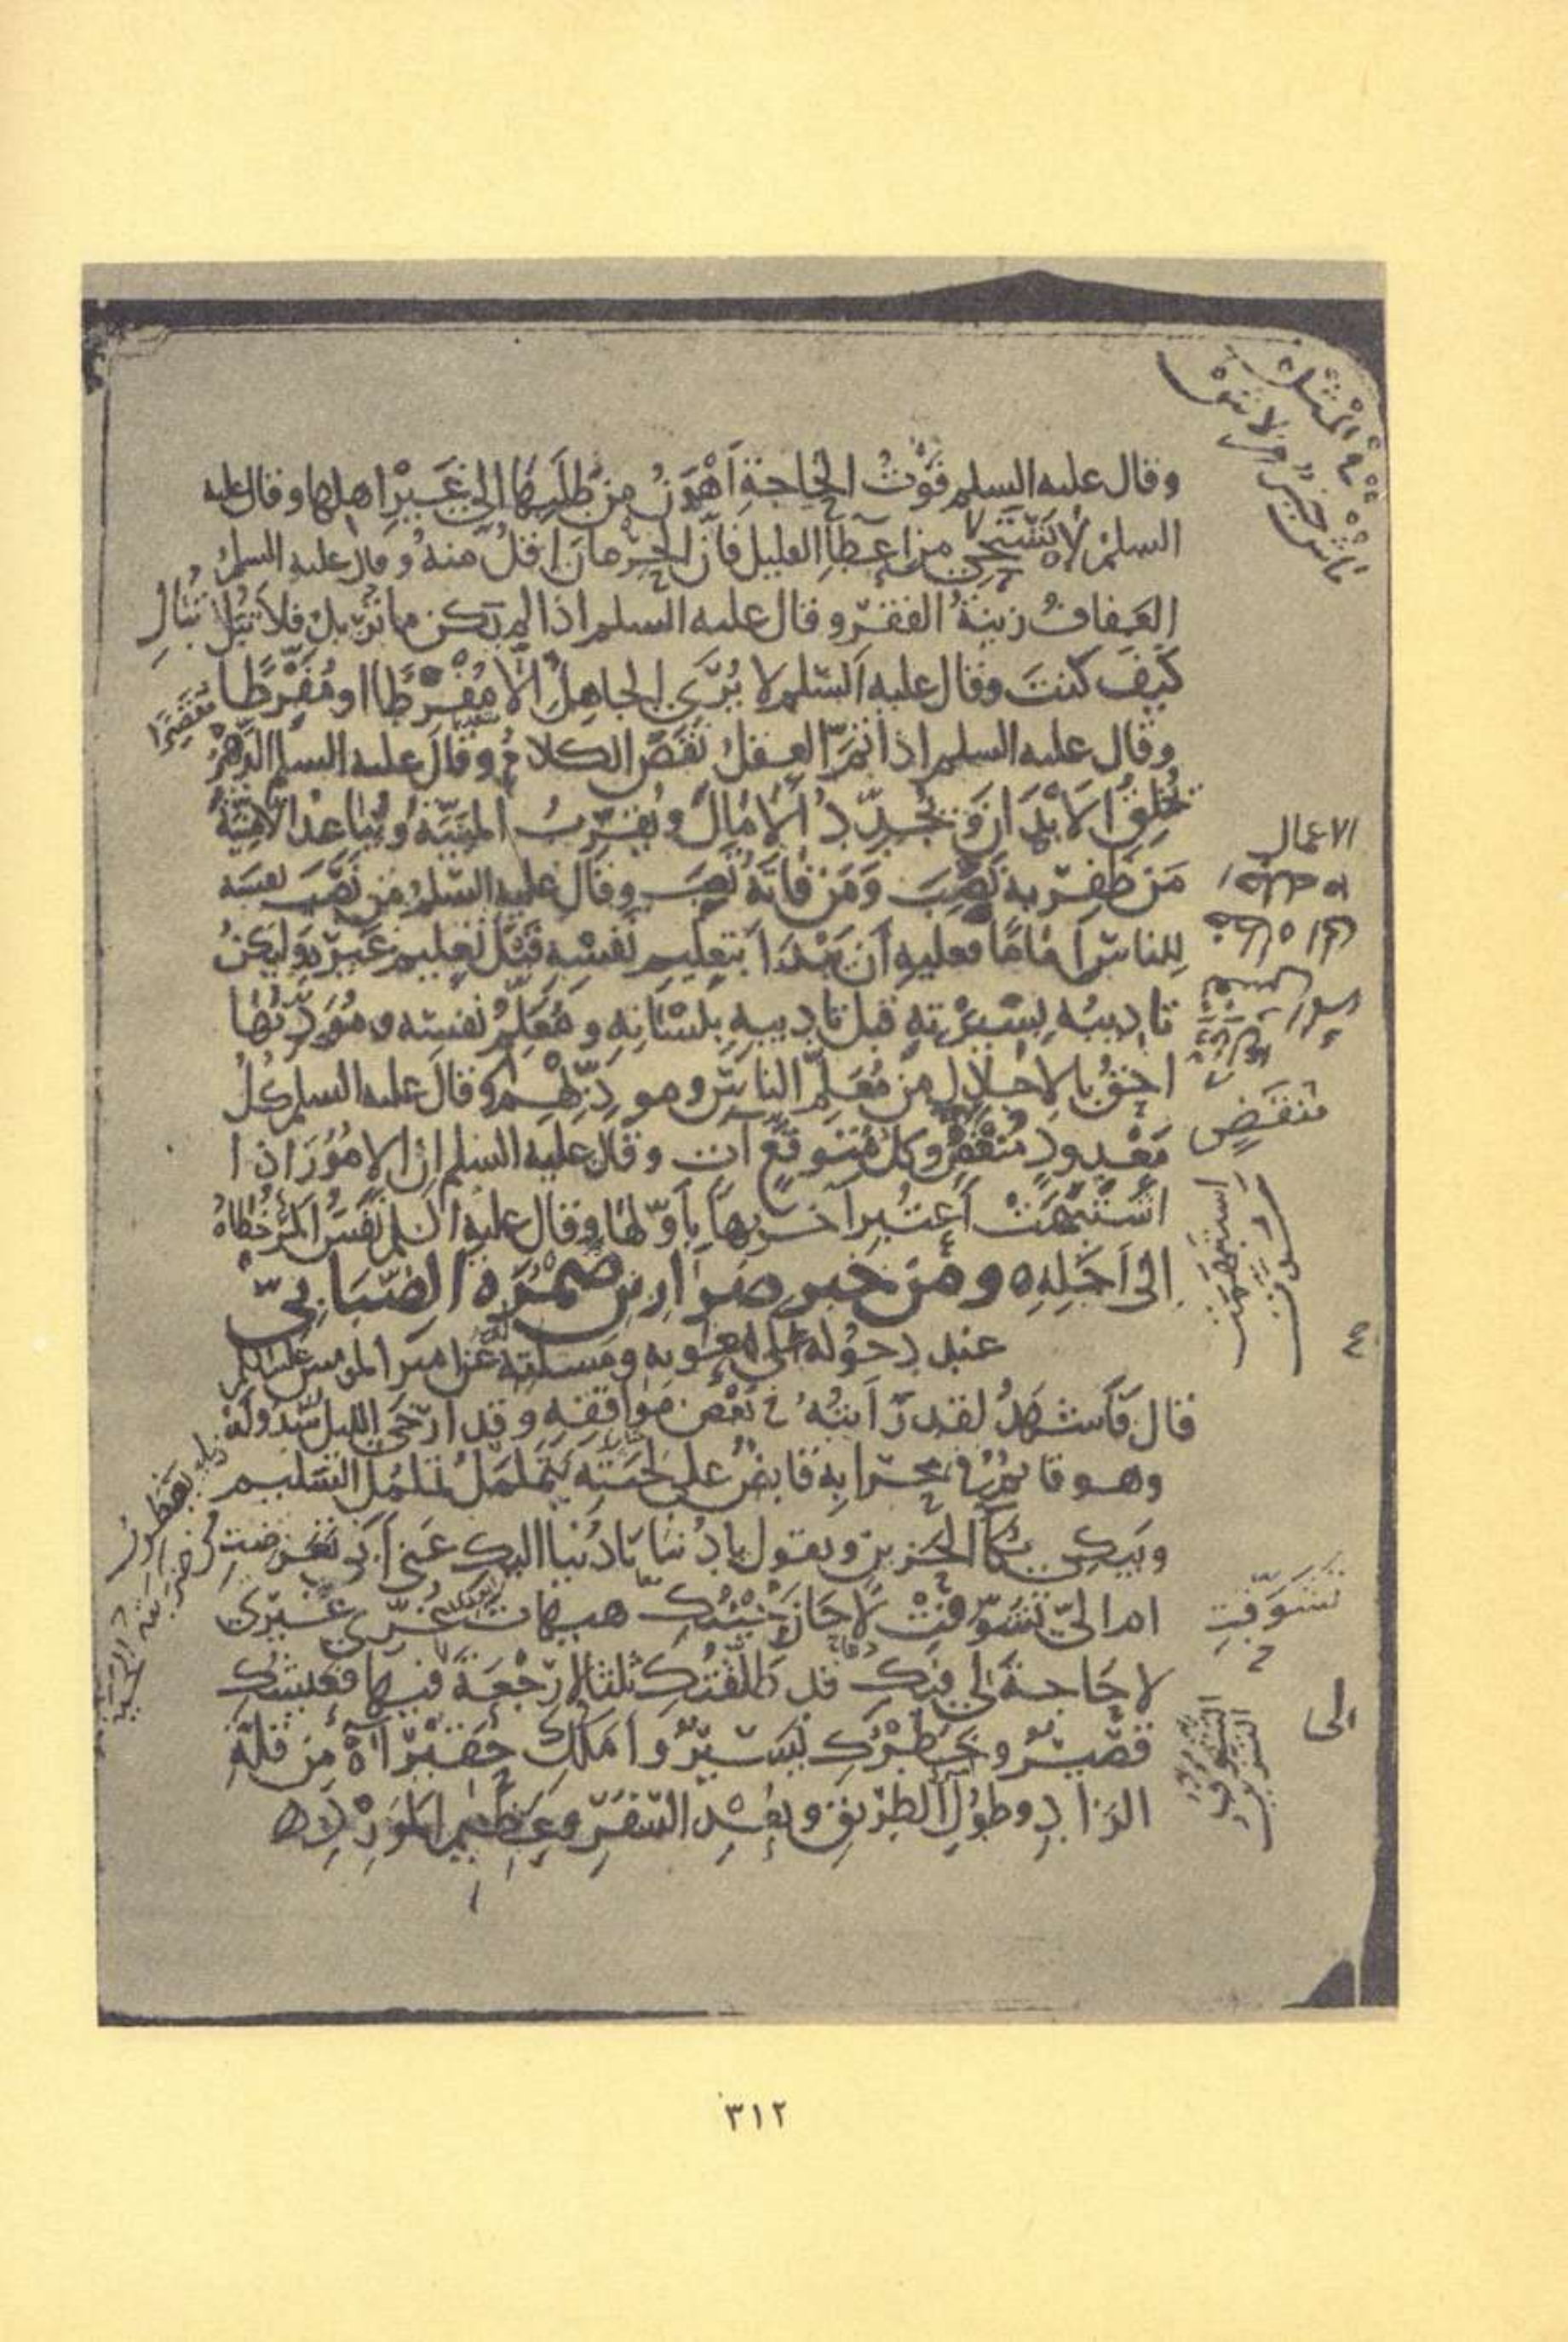 وقال عليه السلم فَوْتُ الحَاجَةِ أَهْوَنُ مِنْ طَلَبِهَا إلى غَيْرِ اهلها وقال عليه
السلمُ لا تَسْتَحِي من اعطاءِ القليل فانَّ الحِرْمانَ اقلُّ منهُ وقال عليه السلمُ
العَفافُ زينةُ الفقر وقال عليه السلم اذا لم يكن ما تريدُ فلا تُبَلْ
كَيْفَ كنتَ وقال عليه السّلم لا يُرَى الجاهِلُ الَّا مُفْرِطًا او مُفَرِّطًا
مقصرا
وقال عليه السلم اذا تَمَّ العقلُ نَقَصَ الكلامُ وقال عليه السلم الدَّهْرُ
يُخْلِقُ الأبْدَانَ وَيُجَدِّدُ الآمَالَ ويُقَرِّبُ المَنِيَّةَ ويُباعِدُ الأمنِيَّةَ
الاعمال
مَنْ ظَفِرَ بِهِ نَصِبَ وَمَنْ فَاتَهُ تَعِبَ وقال عليه السّلمُ من نَصَبَ نفسَه
لِلناسِ إمَامًا فعليهِ أن يَبْدَأ بتعليم نفسِه قبْلَ تعليم غَيْرِهِ وليكنْ
تاديبُه بِسِيرَتِهِ قبل تاديبهِ بلسَانِهِ ومُعَلِّمُ نفسِه ومُؤَدِّبُهَا
احَقُّ بالاجلالِ مِنْ مُعَلِّمِ الناسِ ومودّبهم وقال عليه السلم كلُّ
مَعْدودٍ مُنْقَضٍ وكلُّ مُتَوقَّعٍ آتٍ وقال عليه السلم انَّ الامُورَ اذا
منقضٍ
اشْتَبَهَتْ اعْتُبِرَ آخِرُها بِأوَّلِها وقال عليه السلم نَفَسُ المَرْءِ خُطاهُ
الى أجَلِهِ ه ومن خبرِ ضرار بن ضَمْرَة الضِّبَابِيّ
عند دخوله على معوية ومسئلته عن امير المومنين عليه السلم
قال فأشهدُ لقد رَأيتُه في بعض مَواقفِه وقد ارْخَى الليل سُدُولَهُ
وهو قائمٌ في محرابِه قابضٌ على لحيَتِه يَتَمَلْمَلُ تَمَلْمُلَ السَّليم
ويَبكي بُكاءَ الحزينِ ويقول يا دُنيا يَا دُنيا اليكِ عنى أبي تَعرضتِ
ام اليَّ تشوّقْتِ لا حَانَ حِيْنُكِ هيهات غُرِّي غَيْرِى
تشوّفتِ
لا حاجةَ لي فيكِ قد طلَّقتُكِ ثلثا لا رَجْعَةَ فيها فعيشُكِ
الى
قَصِيْرٌ وخَطَرُكِ يَسيرٌ وأملكِ حقيرٌ آهِ مِن قلَّةِ
الزادِ وطُولِ الطريقِ وبُعْدِ السّفَرِ وعَظِيمِ المَوْرِدِ ه
٣١٢